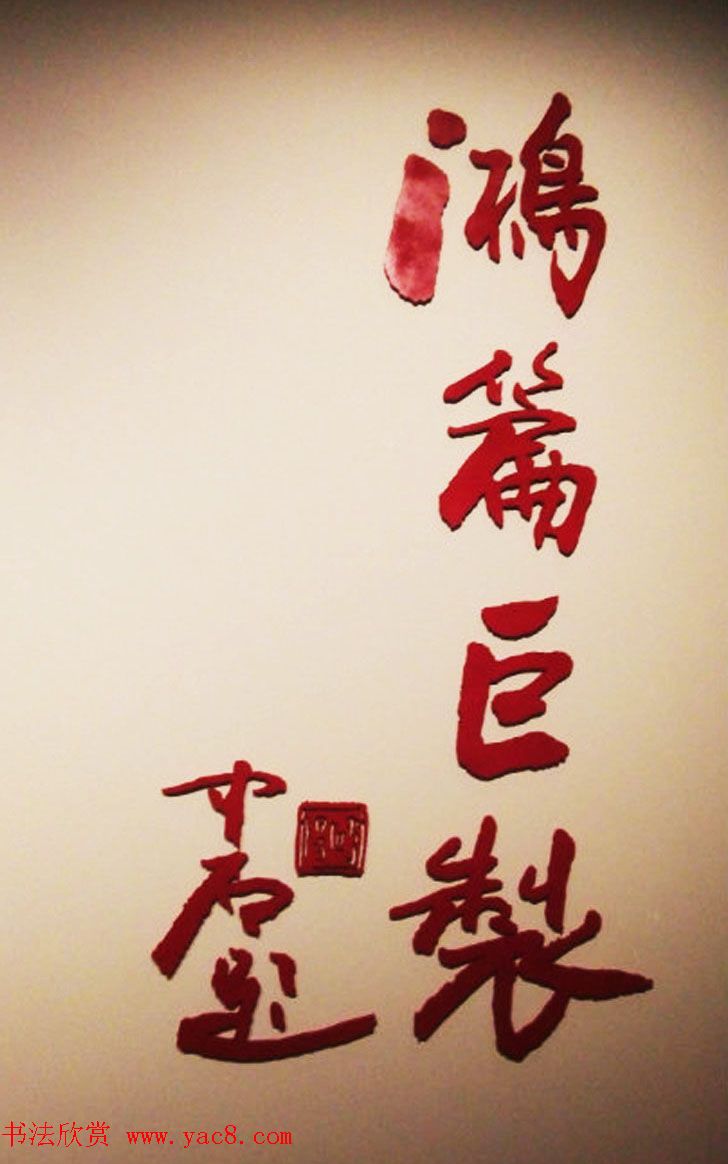 鴻篇巨製
中石题
书法欣赏 www.yac8.com